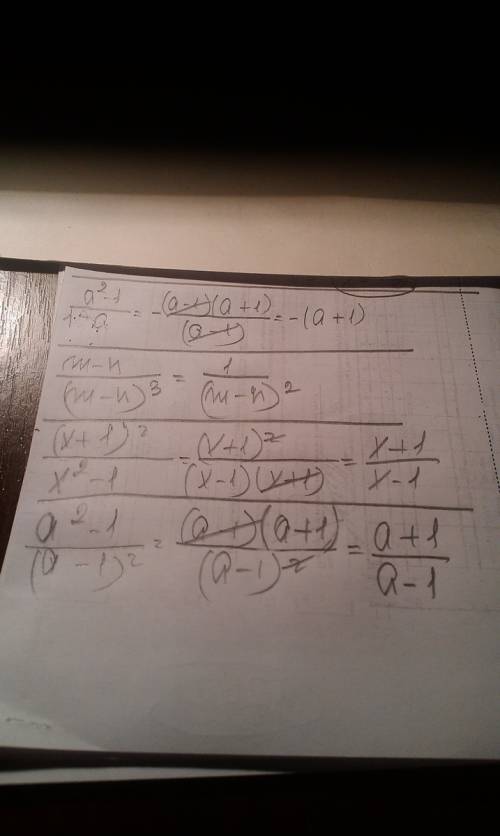 (a²-1)/(1-a) = -((a-1)(a+1))/(a-1) = -(a+1)
(m-n)/(m-n)³ = 1/(m-n)²
(x+1)²/(x²-1) = (x+1)²/((x-1)(x+1)) = (x+1)/(x-1)
(a²-1)/(a-1)² = ((a-1)(a+1))/(a-1)² = (a+1)/(a-1)